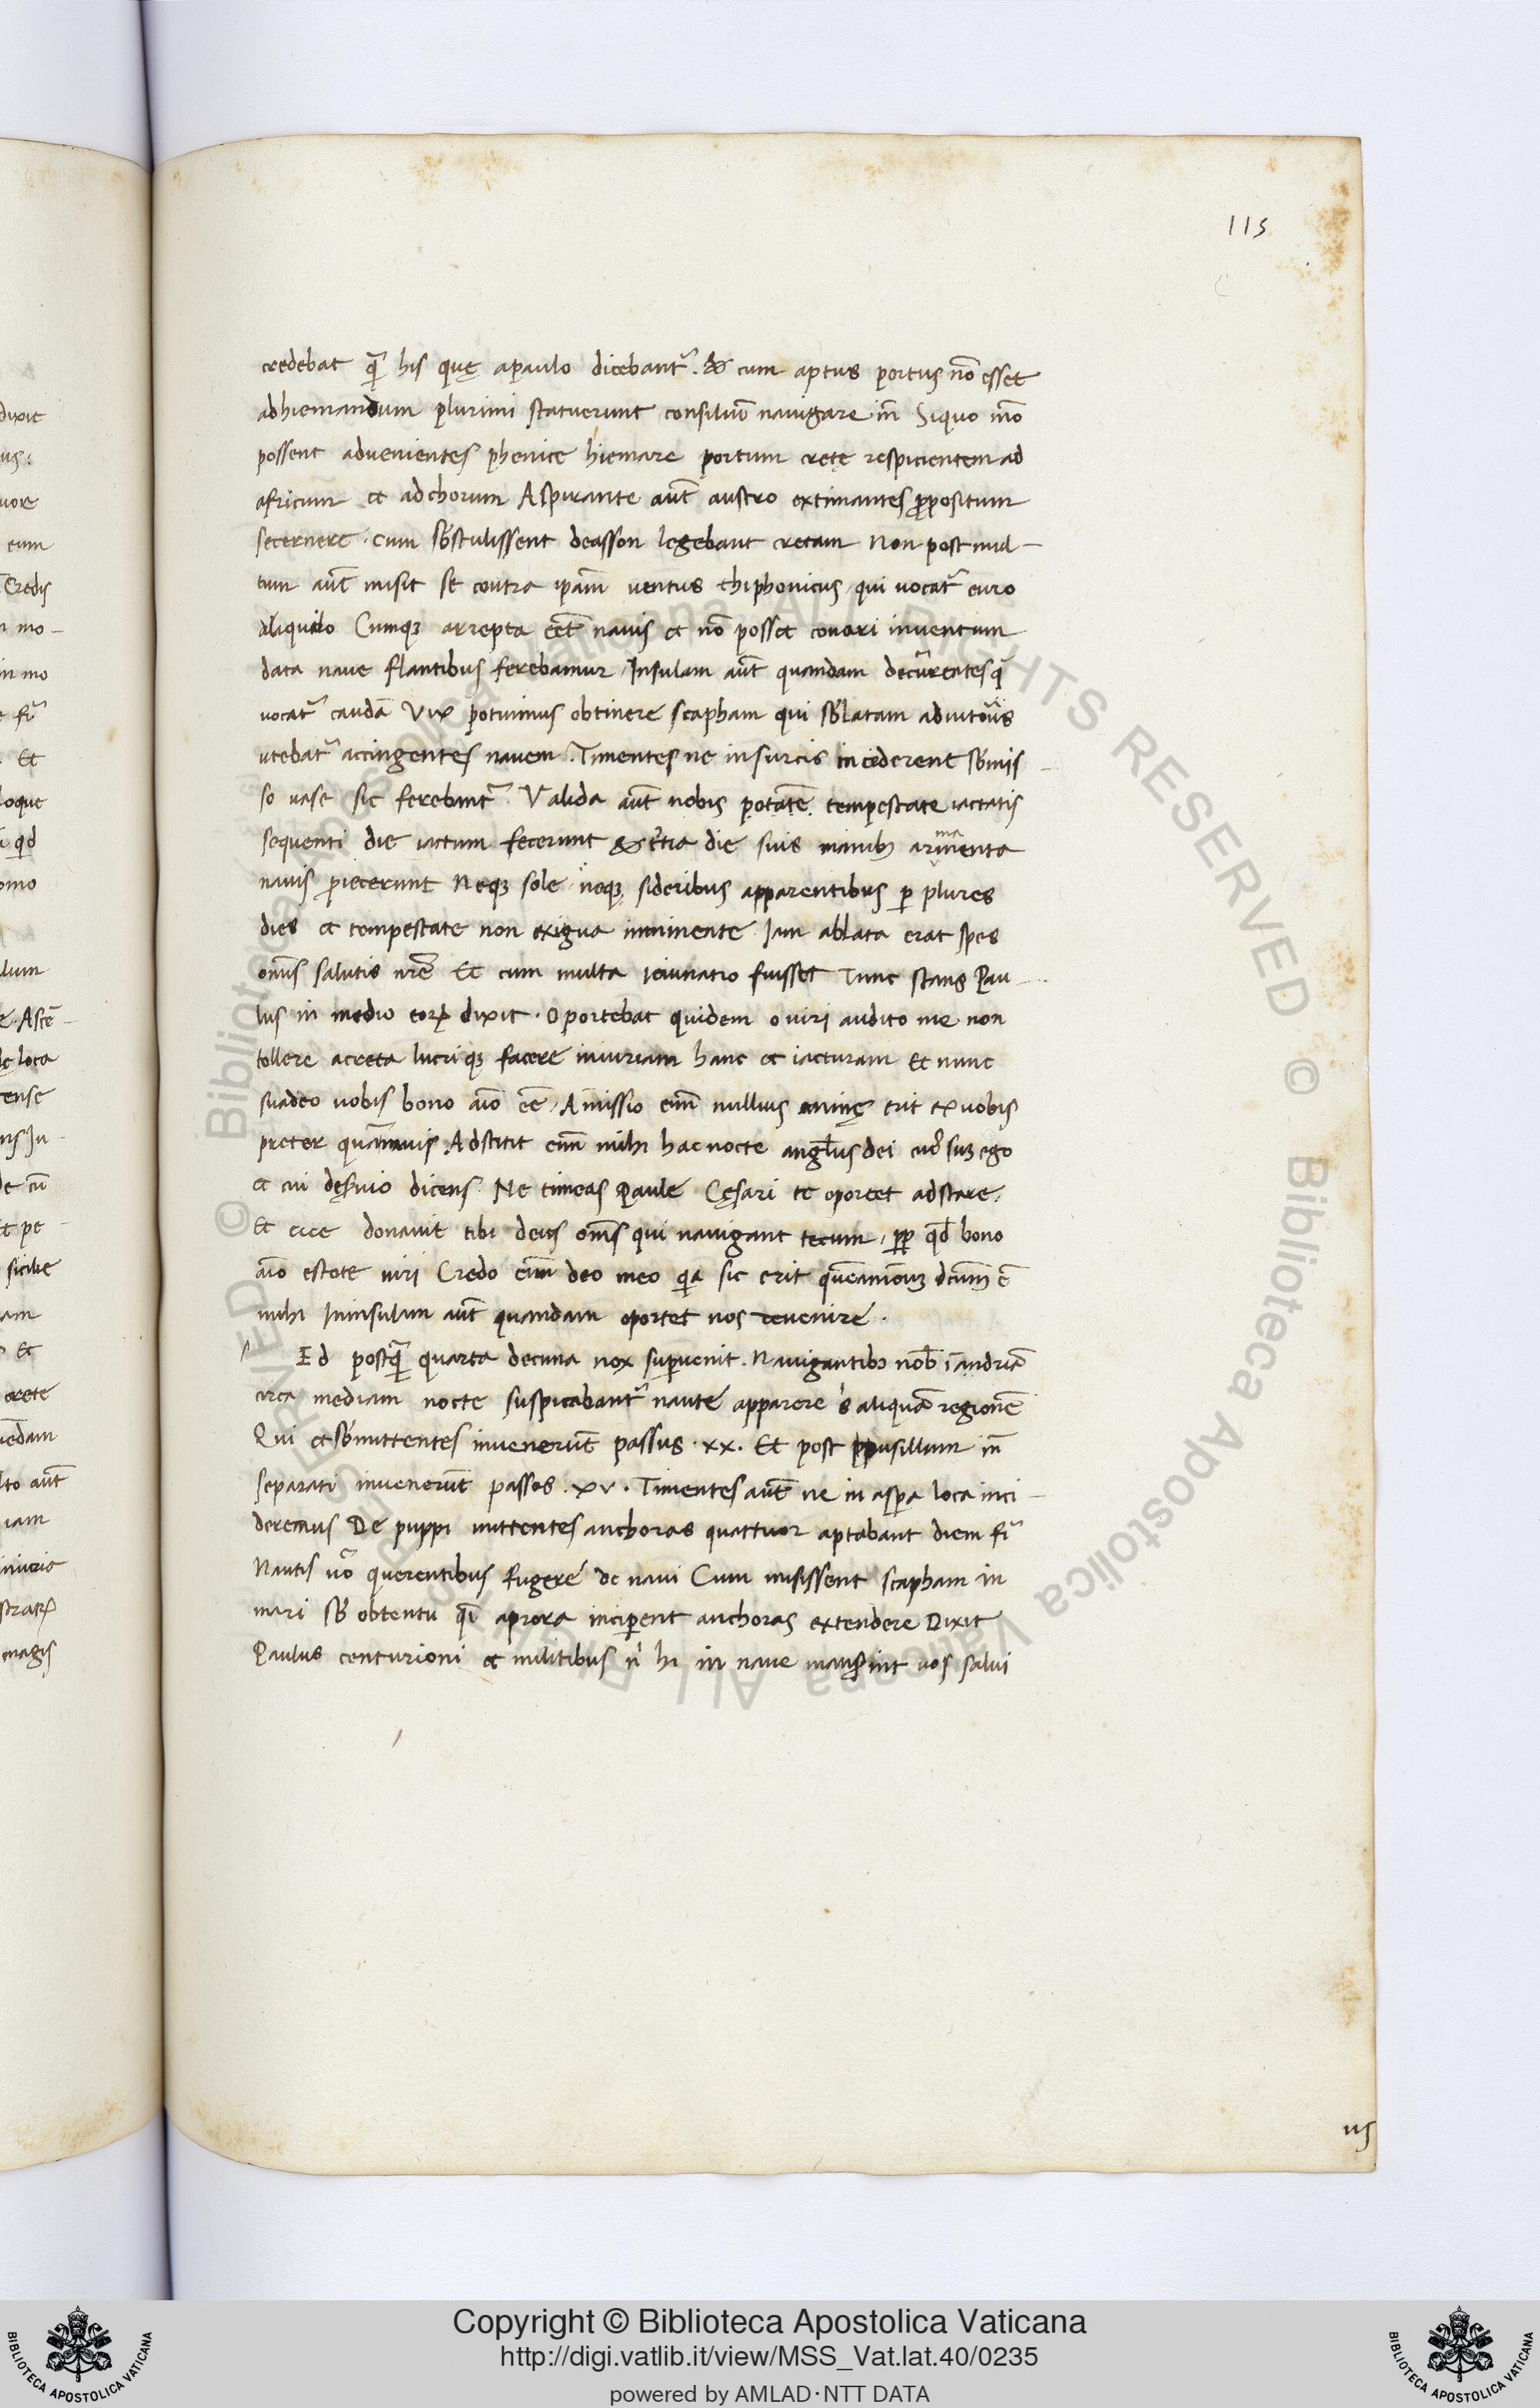 115
credebat q̃ his quę apaulo dicebant᷑. & cum aptus portus nõ esset
adhiemandum plurimi statuerunt consiliũ nauigare iñ Siquo mõ
possent aduenientes phenice hiemare portum cretę respicientem ad
africum et adchorum Aspirante aũt austro extimantes ꝓpositum
secernere. cum sƀstulissent deasson legebant cretam Non post mul-
tum aũt misit se contra ip̃am uentus thiphonicus qui uocat᷑ euro
aliquilo Cumqꝫ arrepta eẽt nauis et nõ posset conari inuentum
data naue flantibus ferebamur Insulam aũt quandam decũrentes q̃
uocat᷑ caudã Vix potuimus obtinere scapham qui sƀlatam
utebat᷑ accingentes nauem. Timentes ne insurcis inciderent sƀmis
so uase sic ferebant᷑. Valida aũt nobis potatẽ tempestate iactatis
sequenti die iactum fecerunt & t̃tia die suis manibꝫ armamenta
nauis proiecerunt Neqꝫ sole neqꝫ sideribus apparentibus ꝑ plures
dies et tempestate non exigua imminente Iam ablata erat spes
om̃is salutis nr̃e Et cum multa ieiunatio fuisset Tunc stans Pau-
lus in medio eoꝝ dixit. Oportebat quidem o uiri audito me non
tollere acreta lucriqꝫ facere iniuriam hanc et iacturam Et nunc
suadeo uobis bono aĩo eẽ. Amissio eñi nullius animę erit exuobis
preter quam nauis. Adstitit eñi mihi hac nocte anglus dei cuꝰ sum ego
et cui deseruio dicens. Ne timeas Paule Cęsari te oportet adstare.
Et ecce donauit tibi deus om̃s qui nauigant tecum, ꝓp̃ qđ bono
aĩo estote uiri Credo eñi deo meo qa sic erit quẽadmodum dcũm ẽ
mihi Ininsulam aũt quandam oportet nos deuenire.
Ed postq̃ quarta decima nox suꝑuenit. Nauigantibꝫ nob̃ ĩ andriã
circa mediam nocte suspicabant᷑ nautę apparere s aliquã regionẽ
Qui et sƀmittentes inuenerũt passus. xx. Et post pusillum iñ
separati inuenerũt passos. xv. Timentes aũt ne in asꝑa loca inci-
deremus De puppi mittentes anchoras quattuor aptabant diem fi᷑
Nautis uõ querentibus fugere de naui Cum misissent scapham in
mari sƀ obtentu qĩ aprora inciꝑent anchoras extendere Dixit
Paulus centurioni et militibus ñ hi in naue manserint uos salui
us
Copyright © Biblioteca Apostolica Vaticana
http://digi.vatlib.it/view/MSS_Vat.lat.40/0235
powered by AMLAD·NTT DATA